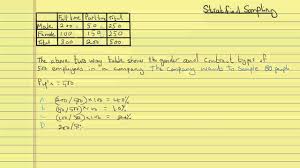 Stratified Sampling
Full time Part time Total
Male 200 50 250
Female 100 150 250
Total 300 200 500
The above two way table shows the gender and contract types of
500 employees in a company. The company wants to sample 80 people.
= 500
A (200/500) × 100 = 40%
B (50/500) × 100 = 10%
C (100/500) × 100 = 20%
D 200/50